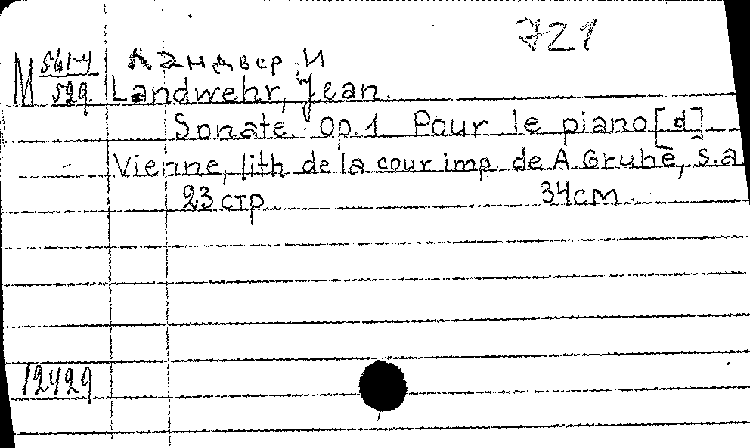 721
M 561-4/529
Ландвер, И
Landwehr, Jean.
Sonate op.1 Pour le piano [d]
Vienne, lith de la cour imp de A Gruhe, s.a
23 стр 34см
12429